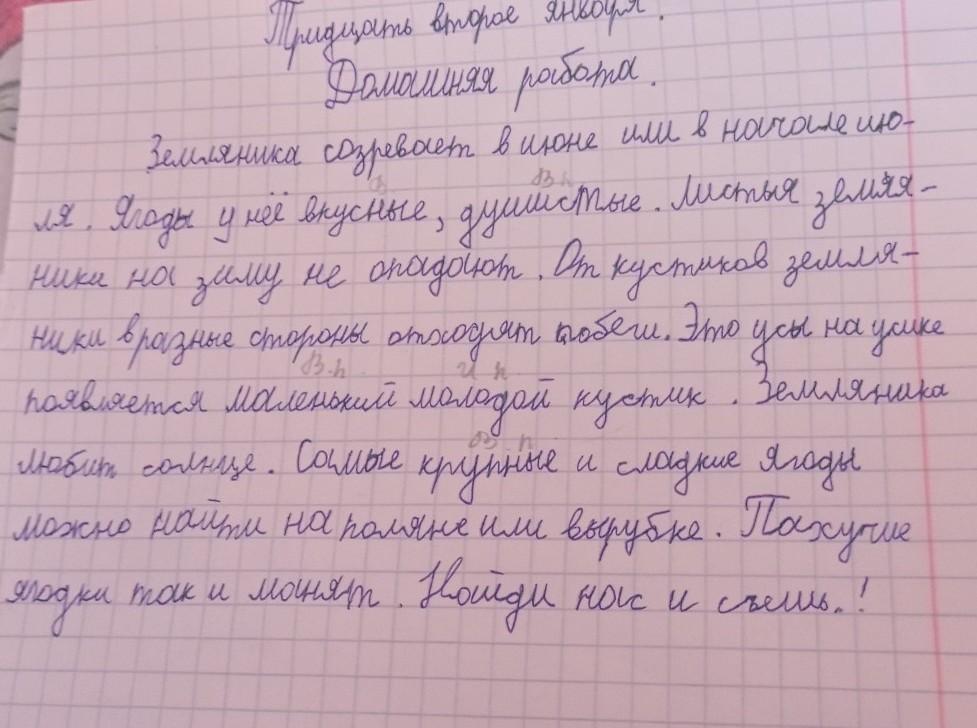 Тридцать второе января.
Домашняя работа.
Земляника созревает в июне или в начале ию-
ля. Ягоды у неё вкусные, душистые. Листья земля-
ники на зиму не опадают. От кустиков земля-
ники в разные стороны отходят побеги. Это усы на усике
В.п. И п
появляется маленький молодой кустик. Земляника
В п
любит солнце. Самые крупные и сладкие ягоды
можно найти на поляне или вырубке. Пахучие
ягодки так и манят. Найди нас и съешь.!